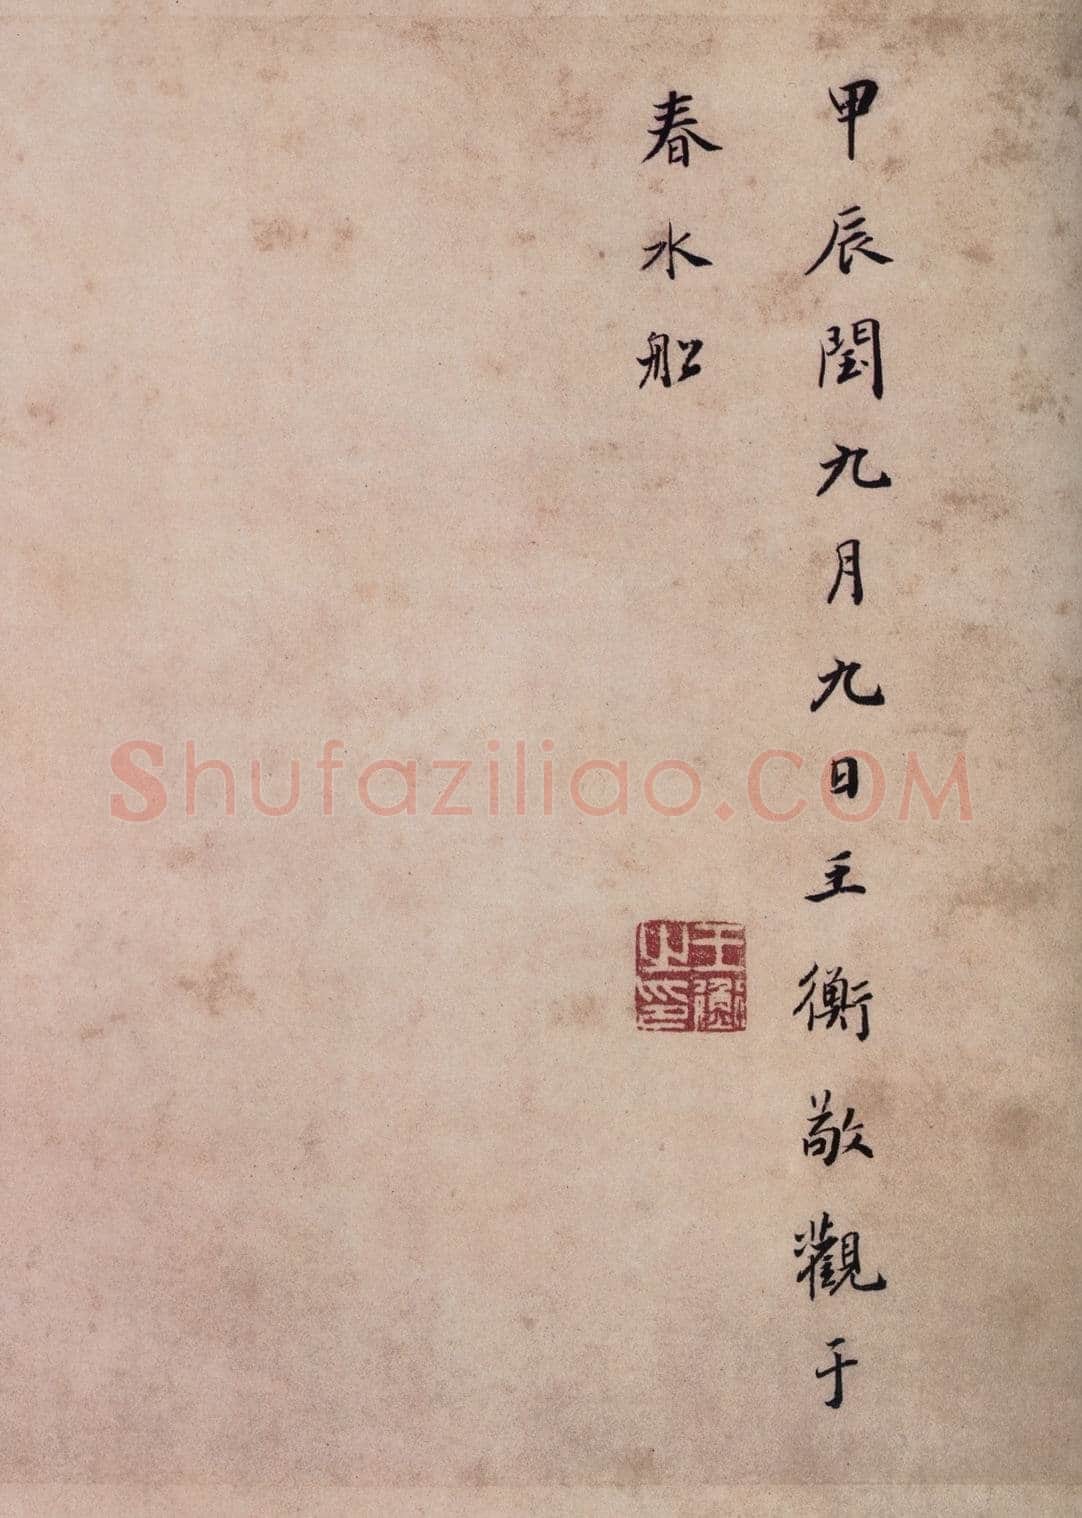 甲辰閏九月九日王衡敬觀于
春水船
王衡之印
Shufaziliao.COM